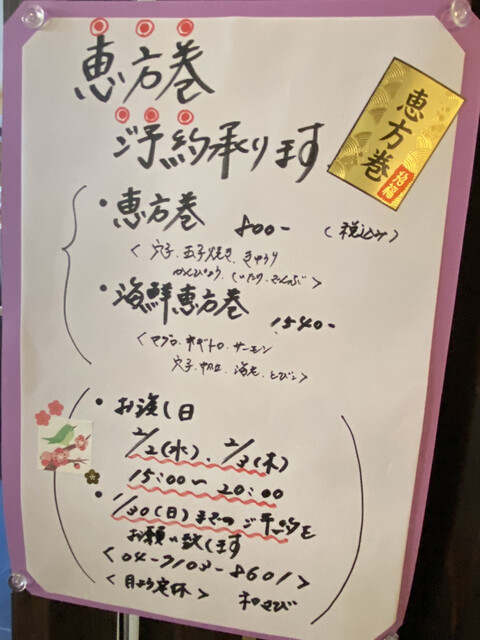 恵方巻
ご予約承ります
恵方巻
招福
・恵方巻 800- (税込み)
<穴子、玉子焼き、きゅうり
かんぴょう、しいたけ、でんぶ>
・海鮮恵方巻 1540-
<マグロ、ネギトロ、サーモン
穴子、海老、とびこ>
・お渡し日
2/2(水)、2/3(木)
15:00〜20:00
・1/30(日)までのご予約を
お願い致します
<04-7103-8601>
<月よう定休> わさび